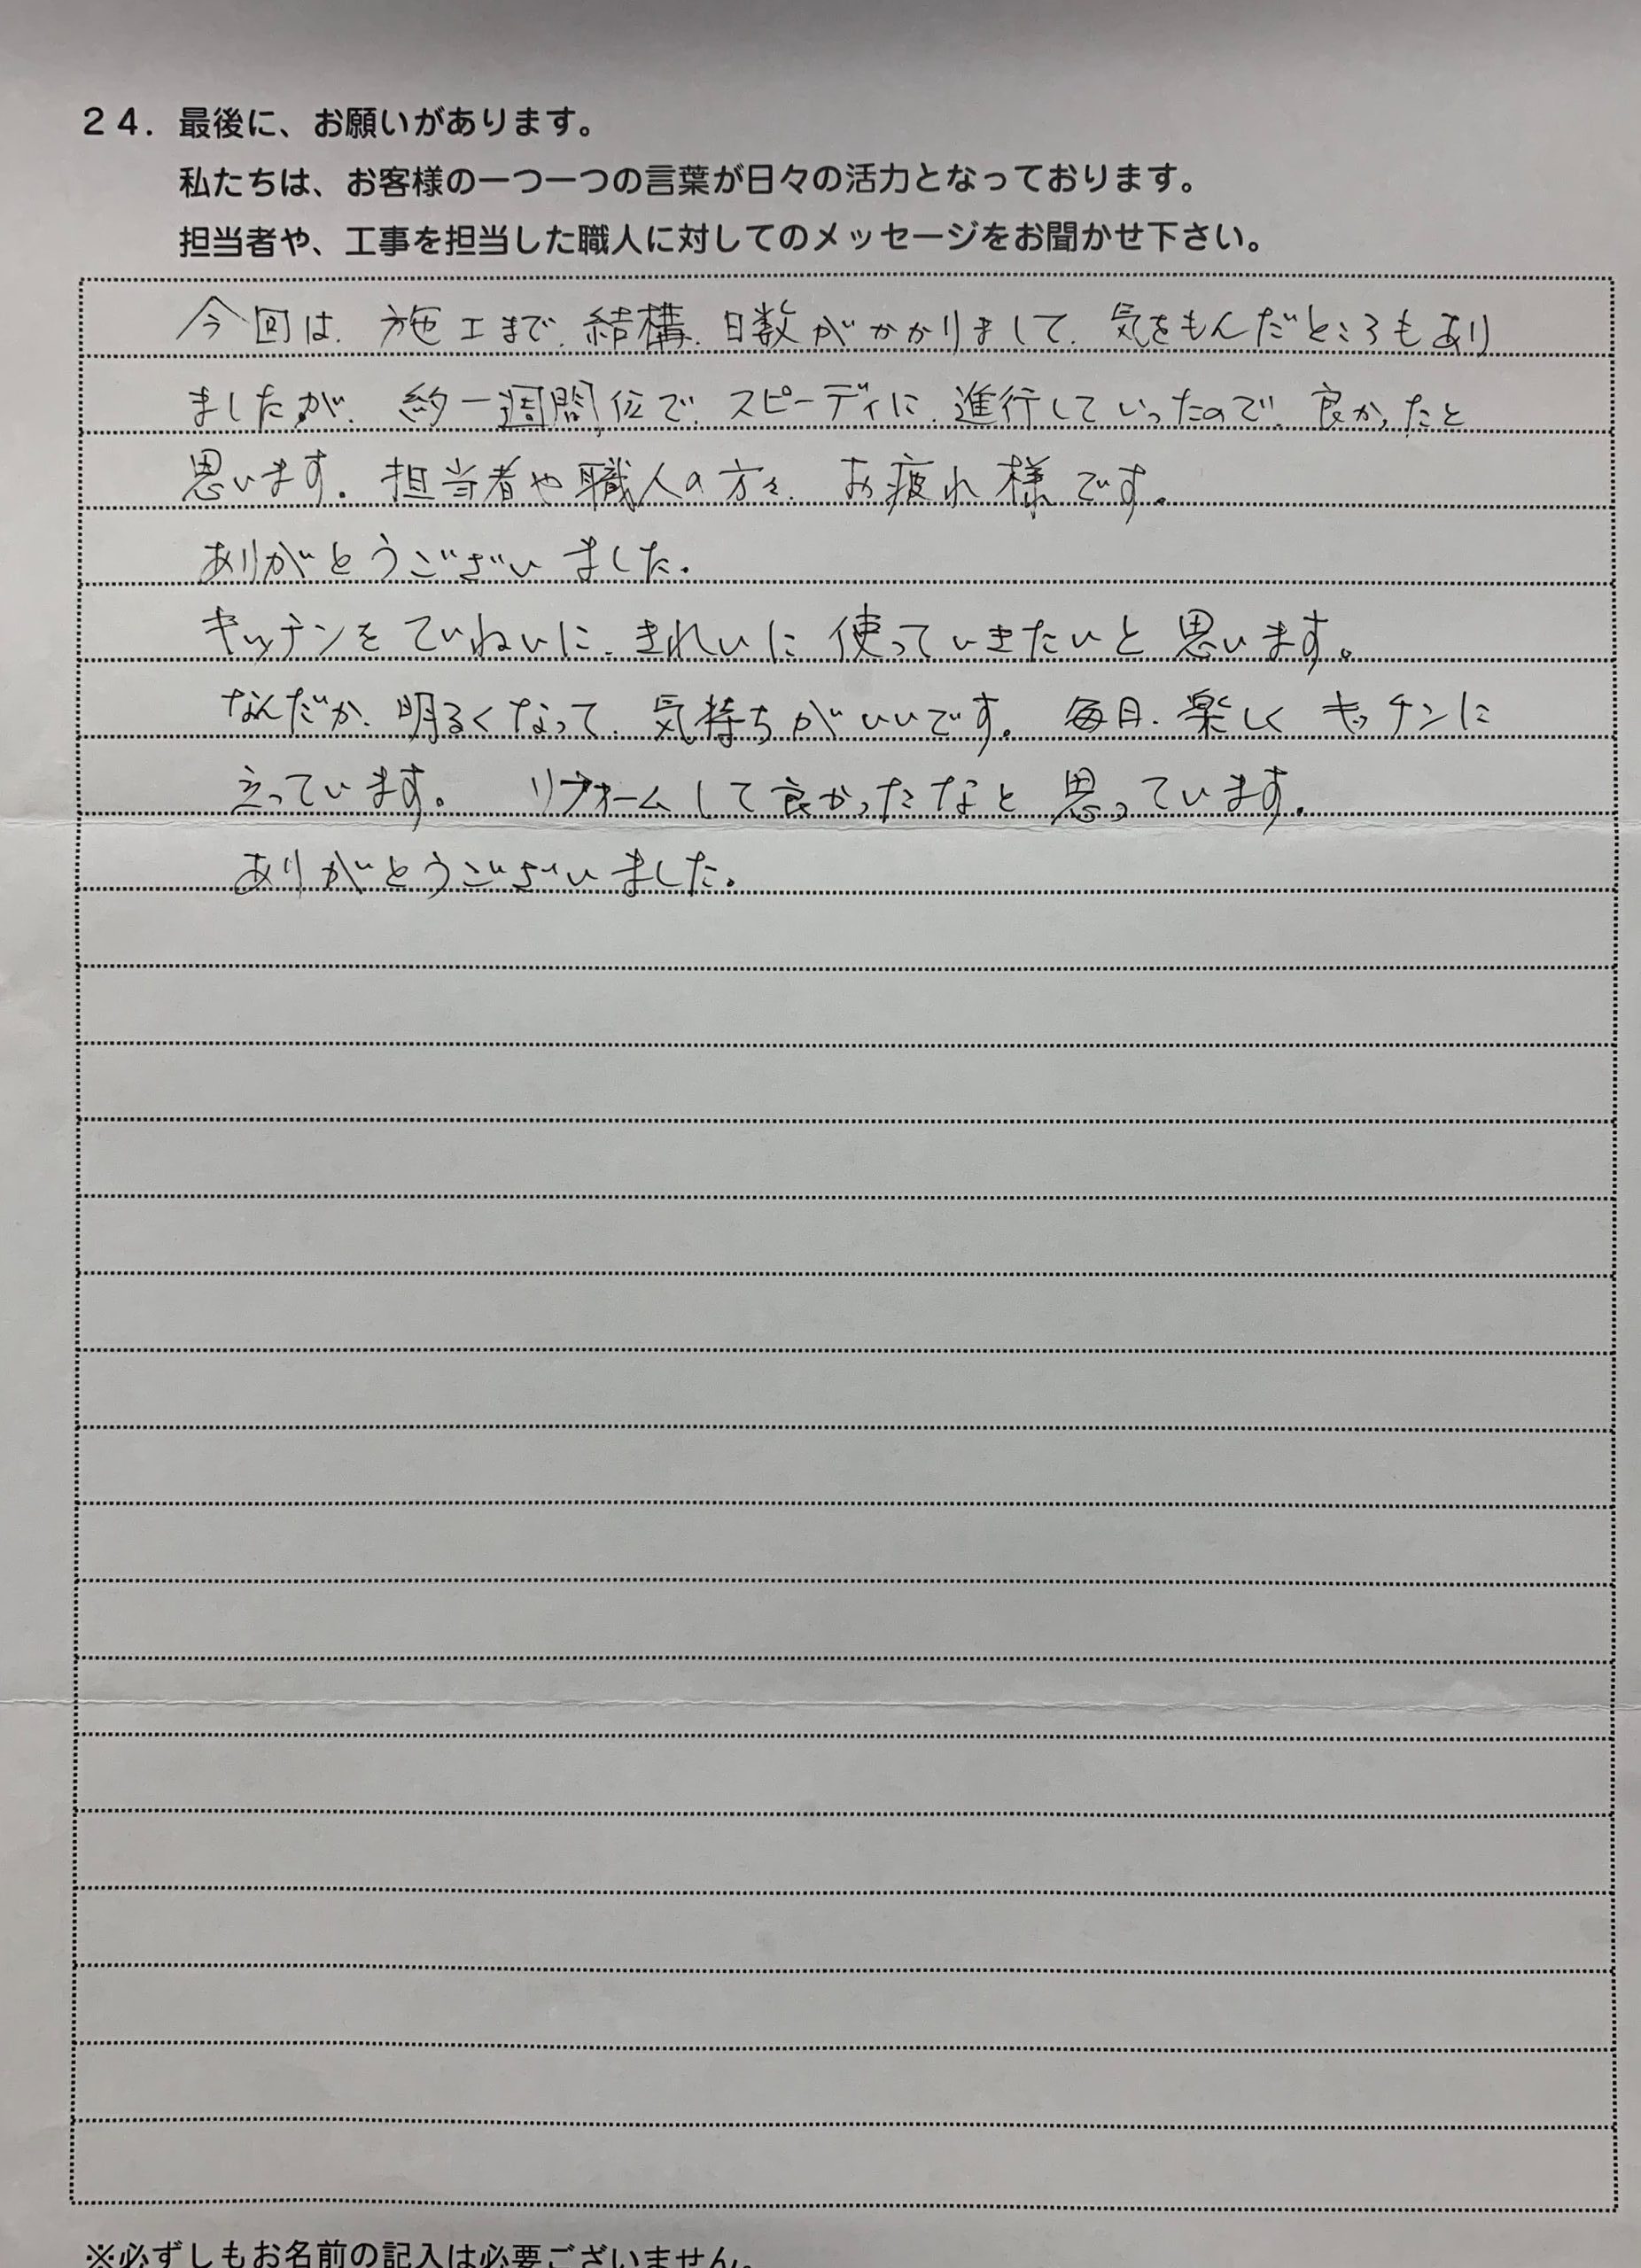 24. 最後に、お願いがあります。
私たちは、お客様の一つ一つの言葉が日々の活力となっております。
担当者や、工事を担当した職人に対してのメッセージをお聞かせ下さい。
今回は、施工まで、結構、日数がかかりまして、気をもんだところもあり
ましたが、約一週間位で、スピーディに、進行していったので、良かったと
思います。担当者や職人の方々、お疲れ様です。
ありがとうございました。
キッチンをていねいに、きれいに使っていきたいと思います。
なんだか、明るくなって、気持ちがいいです。毎日、楽しくキッチンに
立っています。リフォームして良かったなと思っています。
ありがとうございました。
※必ずしもお名前の記入は必要ございません。